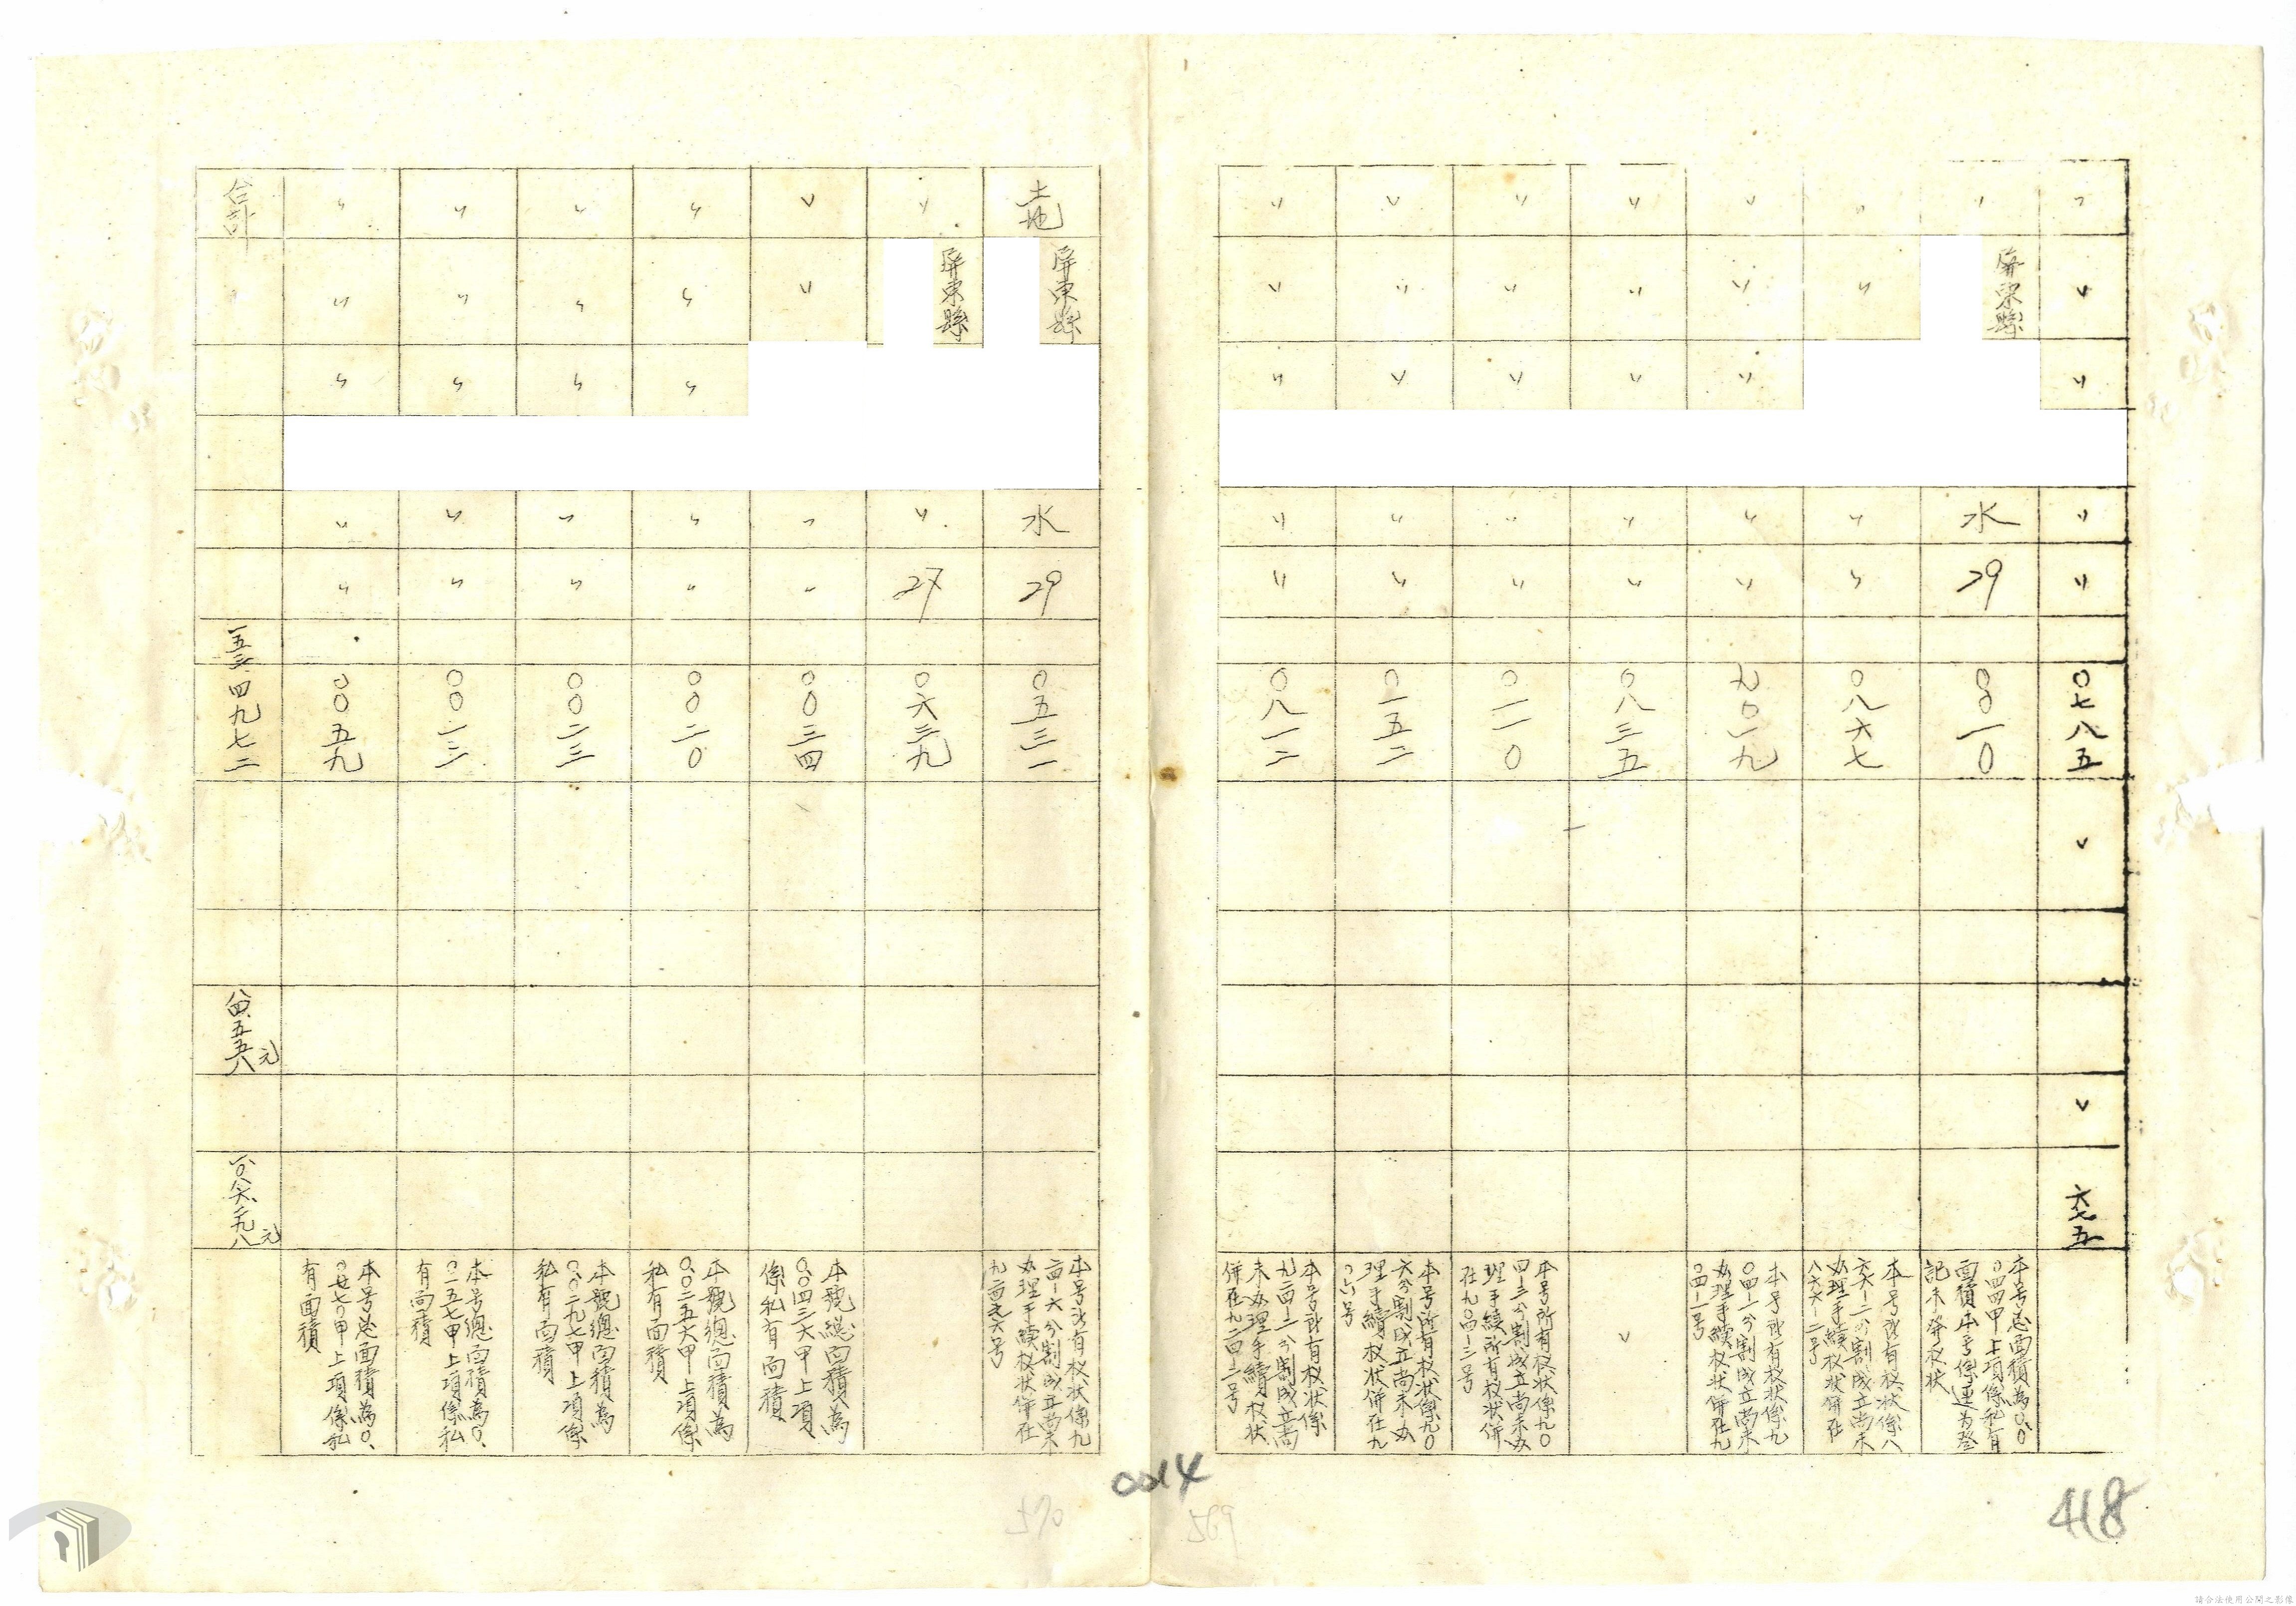 〃 〃 〃 〃 〃 〇七八五 〃 〃 六七五
〃 屏東縣 水 29 〇〇一〇 本号总面積為〇.〇
〇四四甲上項係私有
面積本号係連為登
記未發权狀
〃 〃 〃 〃 〇八六七 本号所有权狀係八
六六-二分割成立尚未
办理手續权狀併在
八六六-二号
〃 〃 〃 〃 〃 九〇一九 本号所有权狀係九
〇四-一分割成立尚未
办理手續权狀併在九
〇四-一号
〃 〃 〃 〃 〃 〇八三五 〃
〃 〃 〃 〃 〃 〇一一〇 本号所有权狀係九〇
四-三分割成立尚未办
理手續所有权狀併
在九〇四-三号
〃 〃 〃 〃 〃 〇一五二 本号所有权狀係九〇
六分割成立尚未办
理手續权狀併在九
〇六号
〃 〃 〃 〃 〃 〇八一二 本号所有权狀係
九二四-二分割成立尚
未办理手續权狀
併在九二四-二号
土地 屏東縣 水 29 〇五三一 本号所有权狀係九
二四-六分割成立尚未
办理手續权狀併在
九二四之六号
〃 屏東縣 〃 27 〇六三九
〃 〃 〃 〃 〇〇三四 本號總面積為
〇.〇四三六甲上項
係私有面積
〃 〃 〃 〃 〃 〇〇二〇 本號總面積為
〇.〇二五六甲上項係
私有面積
〃 〃 〃 〃 〃 〇〇二三 本號總面積為
〇.〇二九七甲上項係
私有面積
〃 〃 〃 〃 〃 〇〇一三 本号總面積為〇.
〇一五七甲上項係私
有面積
〃 〃 〃 〃 〃 〇〇五九 本号总面積為〇.
〇七七〇甲上項係私
有面積
合計 一五三.四九七二 八四.五五八元 一〇八六.二九八元
0014
570
569
418
請合法使用公開之影像